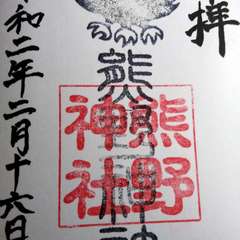 拝
熊野神社
熊野神社
和二年二月十六日